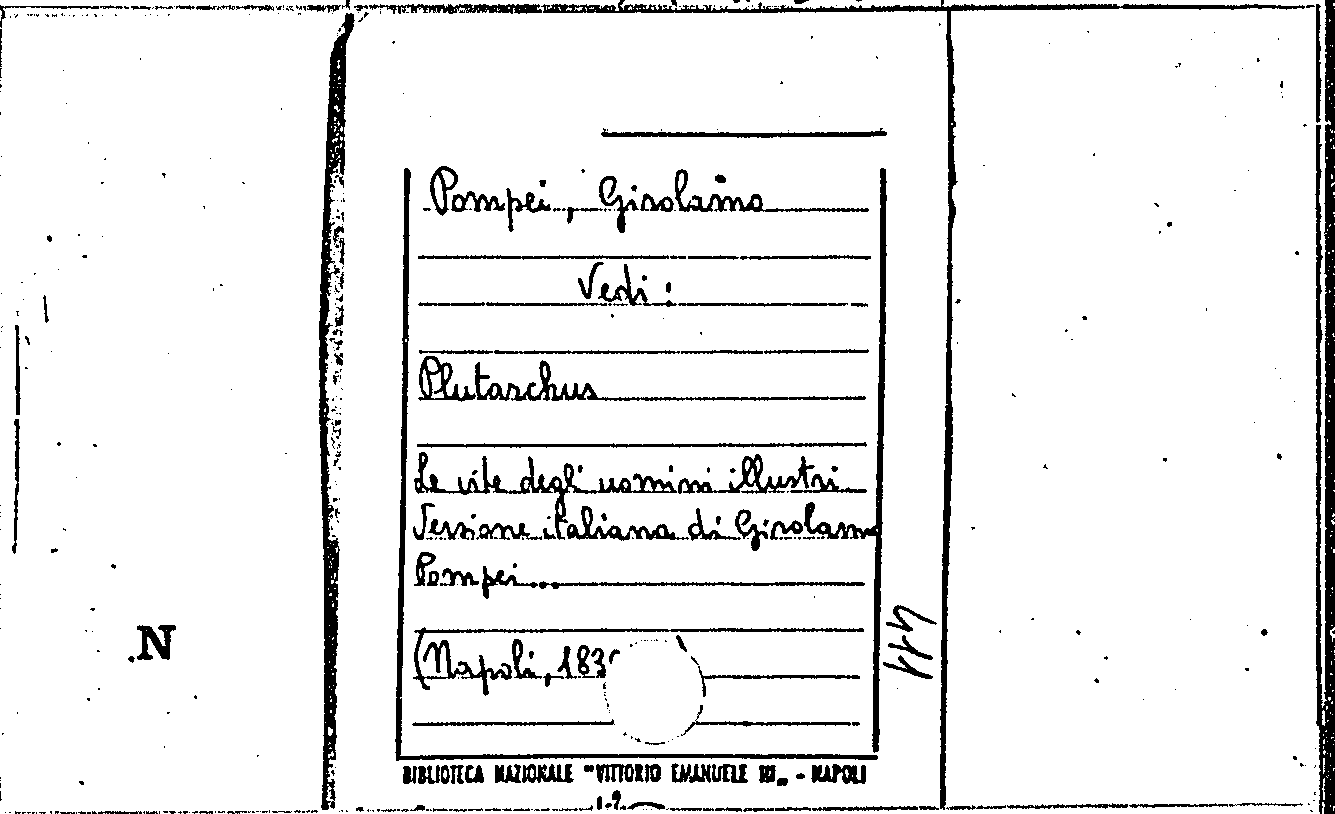 Pompei, Girolamo
Vedi:
Plutarchus
Le vite degli uomini illustri
Versione italiana di Girolamo
Pompei...
(Napoli, 183
411
.N
BIBLIOTECA NAZIONALE "VITTORIO EMANUELE III„ - NAPOLI